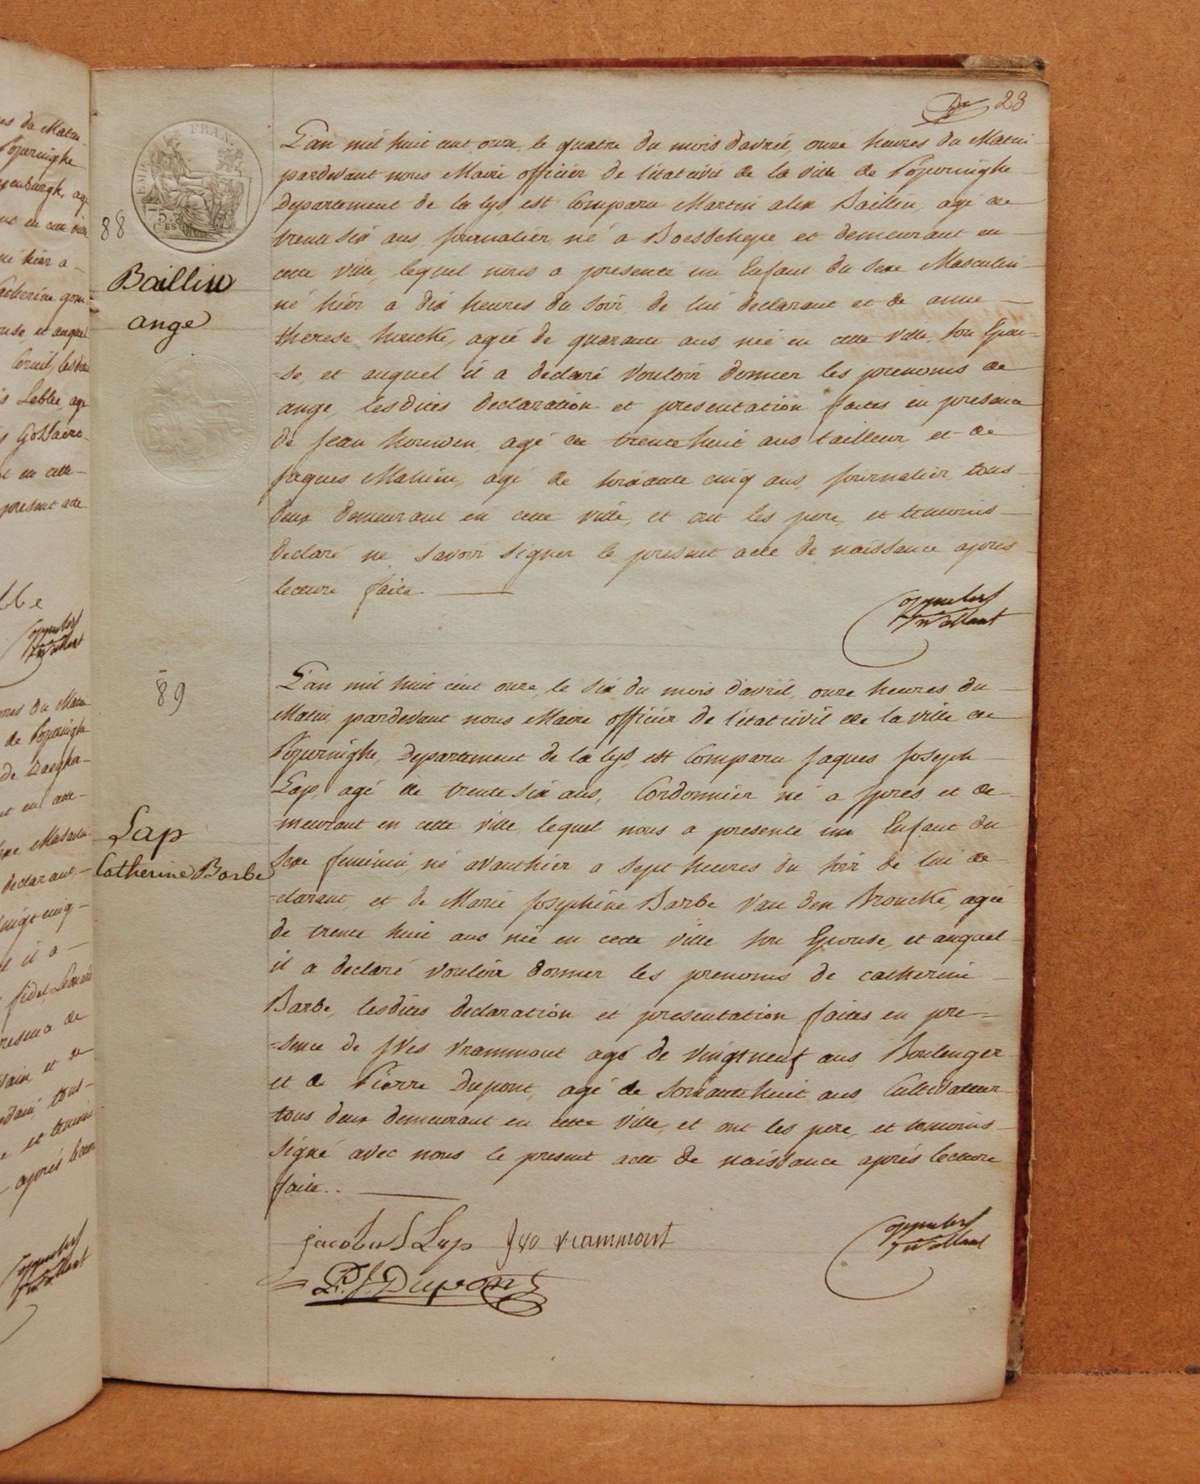 23
88
Baillieu
ange
L'an mil huit cent onze, le quatre du mois d'avril, onze heures du Matin
pardevant nous Maire officier de l'état civil de la ville de Poperinghe
departement de la lys, est Comparu Martin alex Baillieu, agé de
trente six ans, journalier, né a Boesschepe et demeurant en
cette ville, lequel nous a presenté un Enfant du sexe Masculin
né hier a dix heures du soir de lui declarant et de anne
therese, agée de quarante ans née en cette ville, son Epou-
-se, et auquel il a déclaré vouloir donner les prenoms de
ange, lesdites declaration et presentation faites en presence
de Jean houwen, agé de trente huit ans tailleur, et de
Jaques Mahieu, agé de soixante cinq ans, journalier, tous
deux demeurant en cette ville, et ont les pere, et temoins
declaré ne savoir signer le present acte de naissance après
lecture faite.
89
Lap
Catherine Barbe
L'an mil huit cent onze, le six du mois d'avril, onze heures du
Matin, pardevant nous Maire officier de l'état civil de la ville de
Poperinghe, Departement de la lys, est Comparu Jaques Joseph
Lap, agé de trente six ans, Cordonnier né a Ypres et de-
-meurant en cette ville, lequel nous a presenté un Enfant du
sexe feminin, né avanthier a sept heures du soir de lui de-
-clarant, et de Marie Josephine Barbe Van den Broucke, agée
de trente huit ans née en cette ville son Epouse, et auquel
il a declaré vouloir donner les prenoms de catherine
Barbe, lesdites declaration et presentation faites en pre-
-sence de Yves Vrammout agé de vingtneuf ans Boulenger
et de Pierre Dupont, agé de soixante huit ans Cultivateur
tous deux demeurant en cette ville, et ont les pere, et temoins
signé avec nous le present acte de naissance après lecture
faite..
jacobus J Lap Ivo vrammout
P. J. Dupont